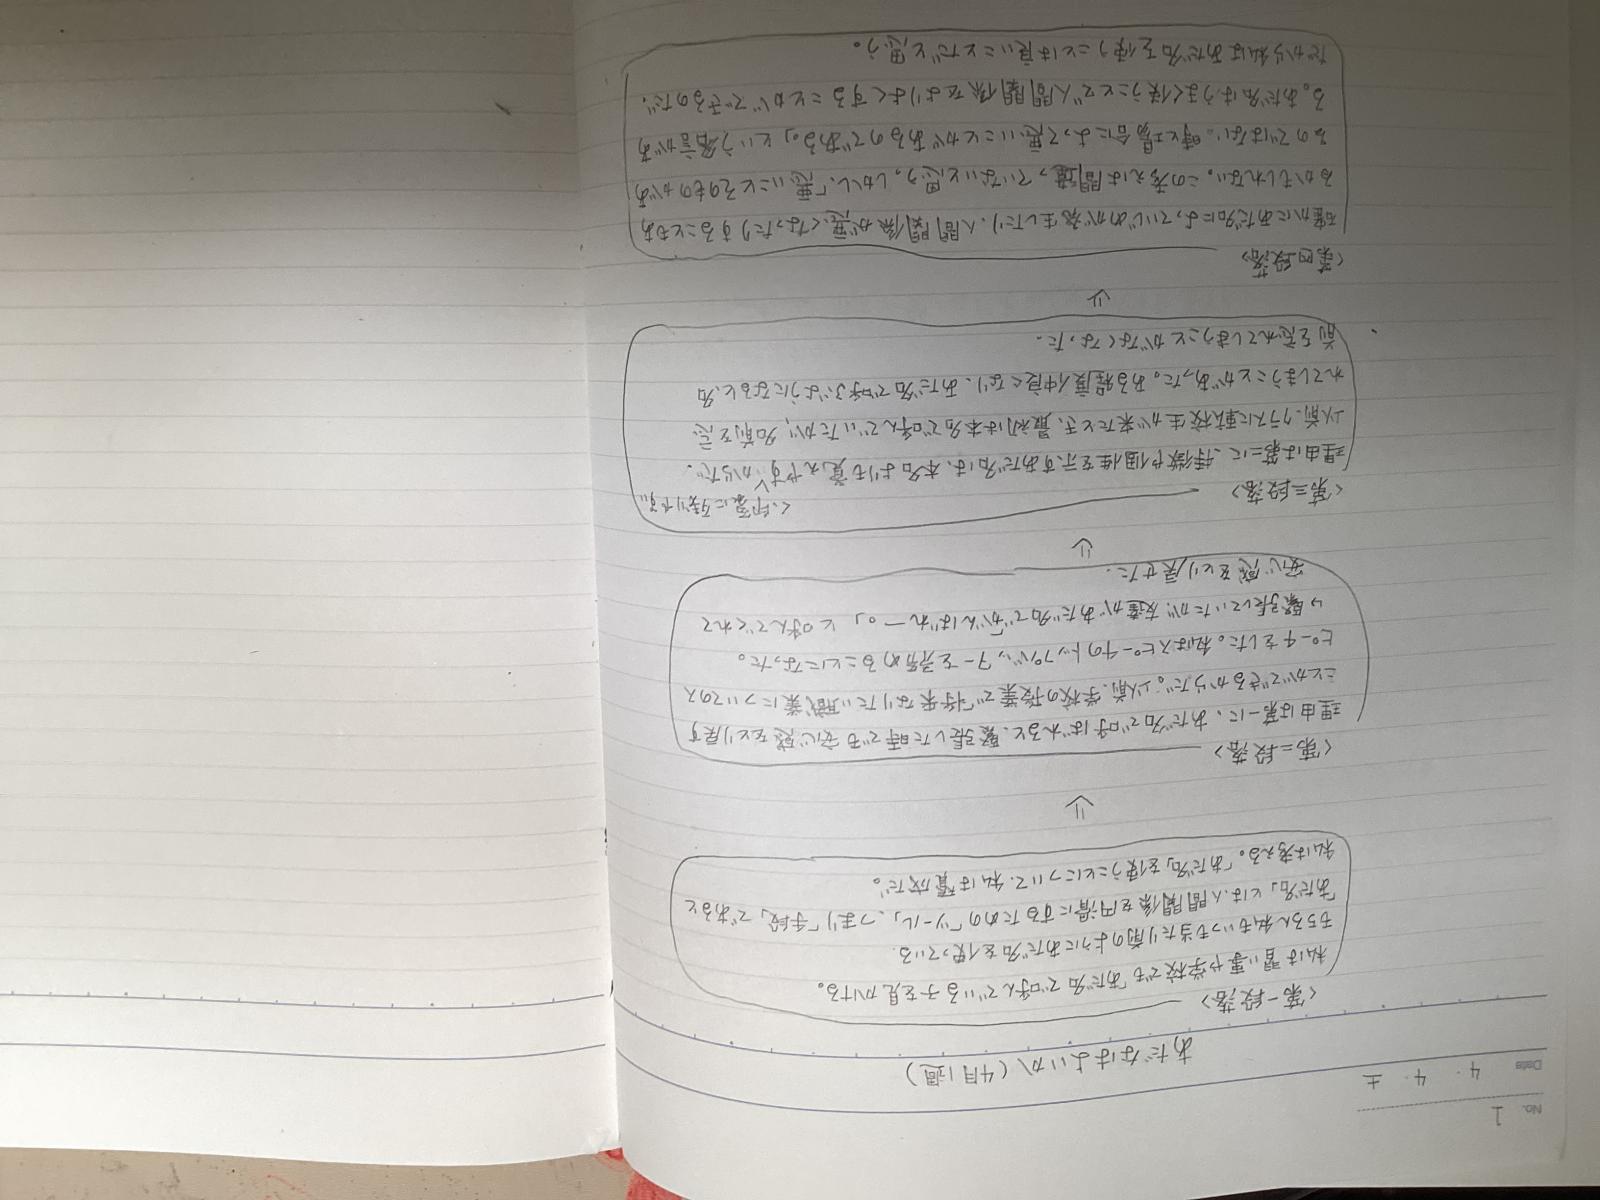 No. 1
Date 4・4・土
あだなはよいか(4月1週)
<第一段落>
私は習い事や学校でもあだ名で呼んでいる子を見かける。
もちろん私もいつも当たり前のようにあだ名を使っている。
「あだ名」とは、人間関係を円滑にするための「ツール」、つまり「手段」であると
私は考える。「あだ名」を使うことについて、私は賛成だ。
⇓
<第二段落>
理由は第一に、あだ名で呼ばれると、緊張した時でも安心感をとり戻す
ことができるからだ。以前、学校の授業で「将来なりたい職業についてのス
ピーチをした。私はスピーチのトップバッターを務めることになった。
↳緊張していたが友達があだ名で「がんばれー。」と呼んでくれて
安心感をとり戻せた。
⇓
<第三段落>
<印象に残りやすい
理由は第二に、特徴や個性を示すあだ名は、本名よりも覚えやすいからだ。
以前、クラスに転校生が来たとき、最初は本名で呼んでいたが、名前を忘
れてしまうことがあった。ある程度仲良くなり、あだ名で呼ぶようになると、名
前を忘れてしまうことがなくなった。
⇓
<第四段落>
確かにあだ名によっていじめが発生したり、人間関係が悪くなったりすることもあ
るかもしれない。この考えは間違っていないと思う。しかし、「悪いことそのものがあ
るのではない。時と場合によって悪いことがあるのである。」という名言があ
る。あだ名はうまく使うことで人間関係をよりよくすることができるのだ。
だから私はあだ名を使うことは良いことだと思う。